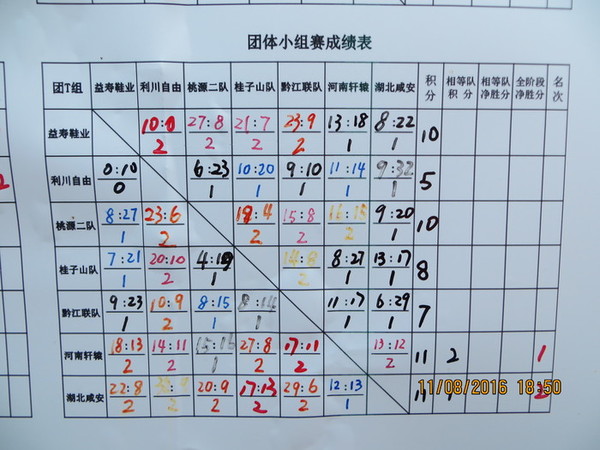 团体小组赛成绩表
团T组 益寿鞋业 利川自由 桃源二队 桂子山队 黔江联队 河南轩辕 湖北咸安 积分 相等队积分 相等队净胜分 全阶段净胜分 名次
益寿鞋业 10:0 27:8 21:7 23:9 13:18 8:22
2 2 2 2 1 1 10
利川自由 0:10 6:23 10:20 9:10 11:14 9:32
0 1 1 1 1 1 5
桃源二队 8:27 23:6 18:4 15:8 16:15 9:20
1 2 2 2 2 1 10
桂子山队 7:21 20:10 4:18 14:8 8:27 13:17
1 2 1 2 1 1 8
黔江联队 9:23 10:9 8:15 8:14 11:17 6:29
1 2 1 1 1 1 7
河南轩辕 18:13 14:11 15:16 27:8 17:11 13:12
2 2 1 2 2 2 11 2 1
湖北咸安 22:8 20:9 17:13 29:6 12:13
2 2 2 2 2 1 11 2
11/08/2016 18:50